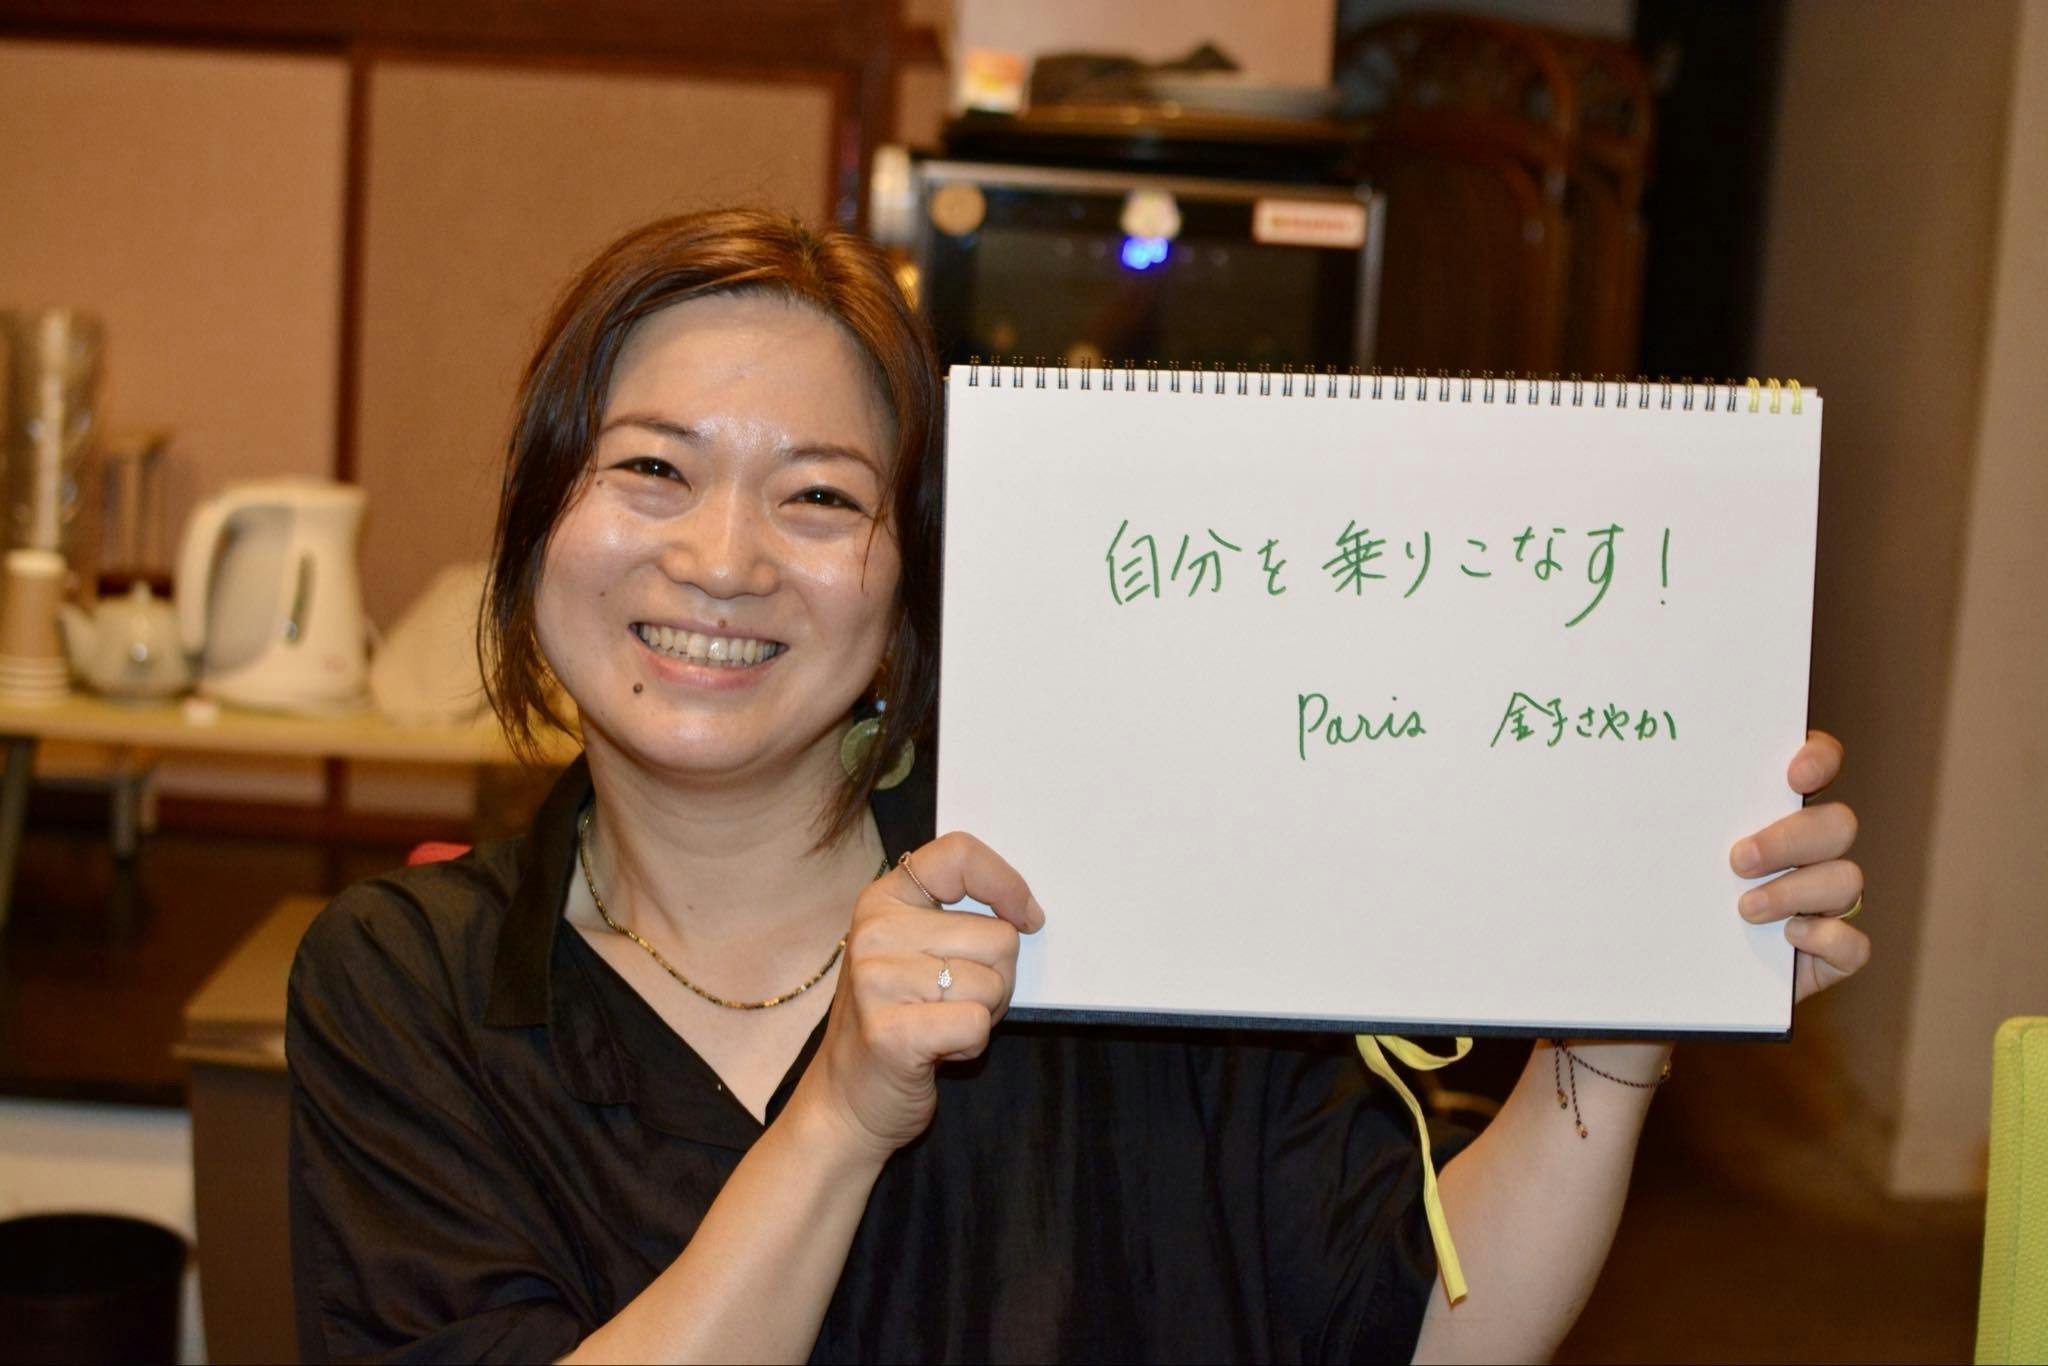 自分を乗りこなす!
Paris 金子さやか